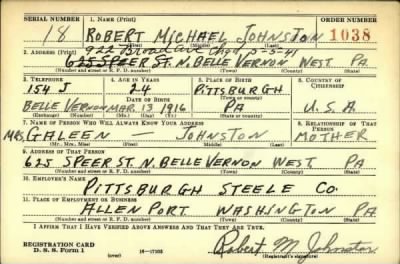 SERIAL NUMBER 1. NAME (Print) ORDER NUMBER
18 ROBERT MICHAEL JOHNSTON 1038
(First) (Middle) (Last)
922 Broad Ave Chgd 5-5-41
2. ADDRESS (Print)
625 SPEER ST. N. BELLE VERNON WEST. PA.
(Number and street or R. F. D. number) (Town) (County) (State)
3. TELEPHONE 4. AGE IN YEARS 5. PLACE OF BIRTH 6. COUNTRY OF CITIZENSHIP
154 J 24 PITTSBURGH
DATE OF BIRTH (Town or county)
BELLE VERNON MAR. 13 1916 PA U.S.A
(Exchange) (Number) (Mo.) (Day) (Yr.) (State or country)
7. NAME OF PERSON WHO WILL ALWAYS KNOW YOUR ADDRESS 8. RELATIONSHIP OF THAT PERSON
MRS. GALEEN JOHNSTON MOTHER
(Mr., Mrs., Miss) (First) (Middle) (Last)
9. ADDRESS OF THAT PERSON
625 SPEER ST. N. BELLE VERNON WEST. PA
(Number and street or R. F. D. number) (Town) (County) (State)
10. EMPLOYER'S NAME
PITTSBURGH STEELE CO.
11. PLACE OF EMPLOYMENT OR BUSINESS
ALLEN PORT WASHINGTON PA
(Number and street or R. F. D. number) (Town) (County) (State)
I AFFIRM THAT I HAVE VERIFIED ABOVE ANSWERS AND THAT THEY ARE TRUE.
REGISTRATION CARD
D. S. S. Form 1 16-17105 Robert M. Johnston
(Registrant's signature)